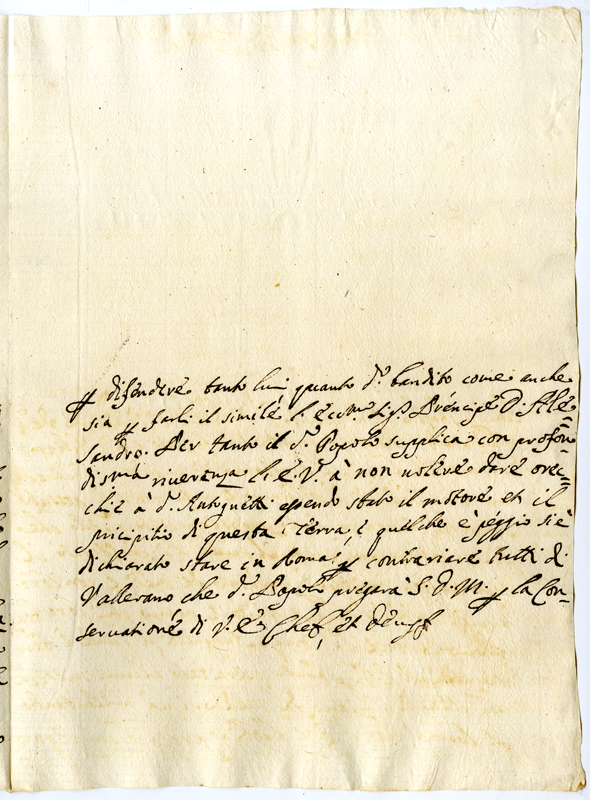 p difendere tanto lui quanto d.º bandito come anche
sia p farli il simile l'ecc.mo Sig.r Prencipe D. Ales=
sandro. Per tanto il d.º Popolo supplica con profon=
dis.ma riverenza l'E.V. à non volere dare orec=
chie à d.º Antognetti essendo stato il motore et il
pricipitio di questa Terra, e quelche è peggio si è
dichiarato stare in Roma p contrariare tutti di
Vallerano che d.º Popolo pregarà S. D. M. p la Con=
servatione di V. E.